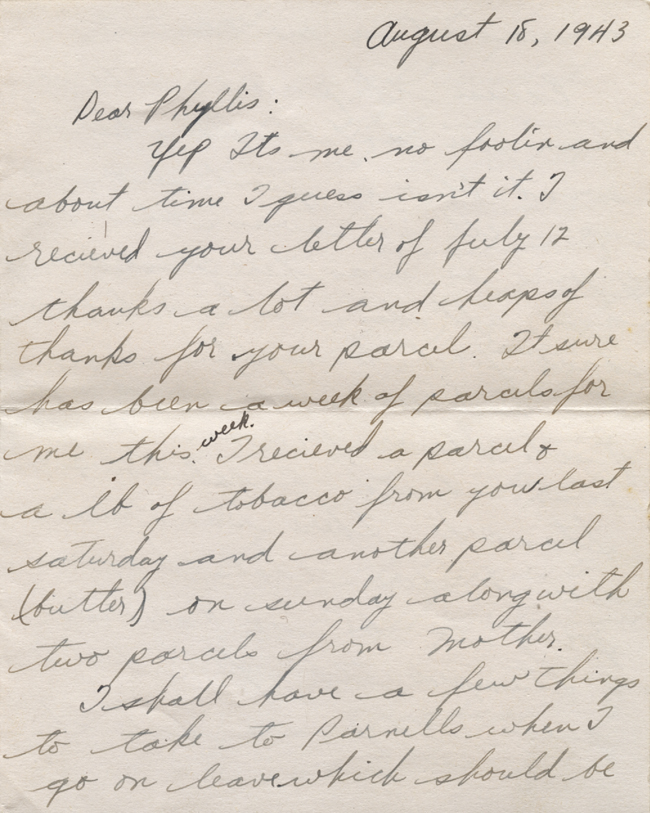 August 18, 1943
Dear Phyllis:
Yep Its me. no foolin and
about time I guess isn't it. I
recieved your letter of July 12
thanks a lot and heaps of
thanks for your parcel. It sure
has been a week of parcels for
me this week. I recieved a parcel &
a lb of tobacco from you last
saturday and another parcel
(butter) on sunday along with
two parcels from Mother.
I shall have a few things
to take to Parnells when I
go on leave which should be